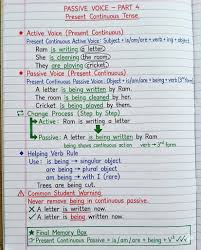 PASSIVE VOICE – PART 4
Present Continuous Tense
Active Voice (Present Continuous)
Present Continuous Active Voice: Subject + is/am/are + verb + ing + object
Ram is writing a letter.
She is cleaning the room.
They are playing cricket.
Passive Voice (Present Continuous)
Present Continuous Passive Voice: Object + is/am/are + being + verb (3rd form)
A letter is being written by Ram.
The room is being cleaned by her.
Cricket is being played by them.
Change Process (Step by Step)
Active: Ram is writing a letter
Passive: A letter is being written by Ram
being shows continuous action verb → 3rd form
Helping Verb Rule
Use: is being → singular object
are being → plural object
am being → with I (rare)
Trees are being cut.
Common Student Warning
Never remove being in continuous passive.
✗ A letter is written now.
✓ A letter is being written now.
Final Memory Box
Present Continuous Passive = is/am/are + being + V³